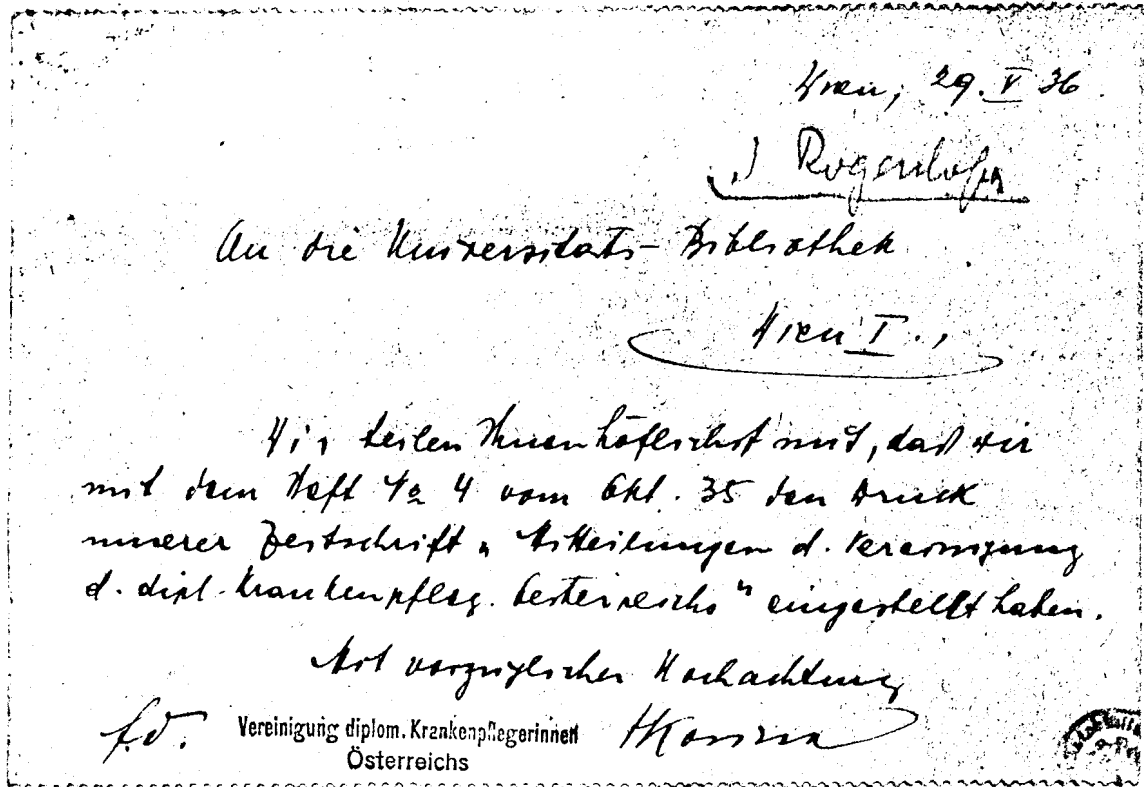 Wien, 29. V 36.
Rogenhofer
An die Universitäts-Bibliothek
Wien I.,
Wir teilen Ihnen höflichst mit, daß wir
mit dem Heft No 4 vom Okt. 35 den Druck
unserer Zeitschrift „Mitteilungen d. Vereinigung
d. dipl. Krankenpfleg. Oesterreichs" eingestellt haben.
Mit vorzüglicher Hochachtung
f.d. Vereinigung diplom. Krankenpflegerinnen
Österreichs